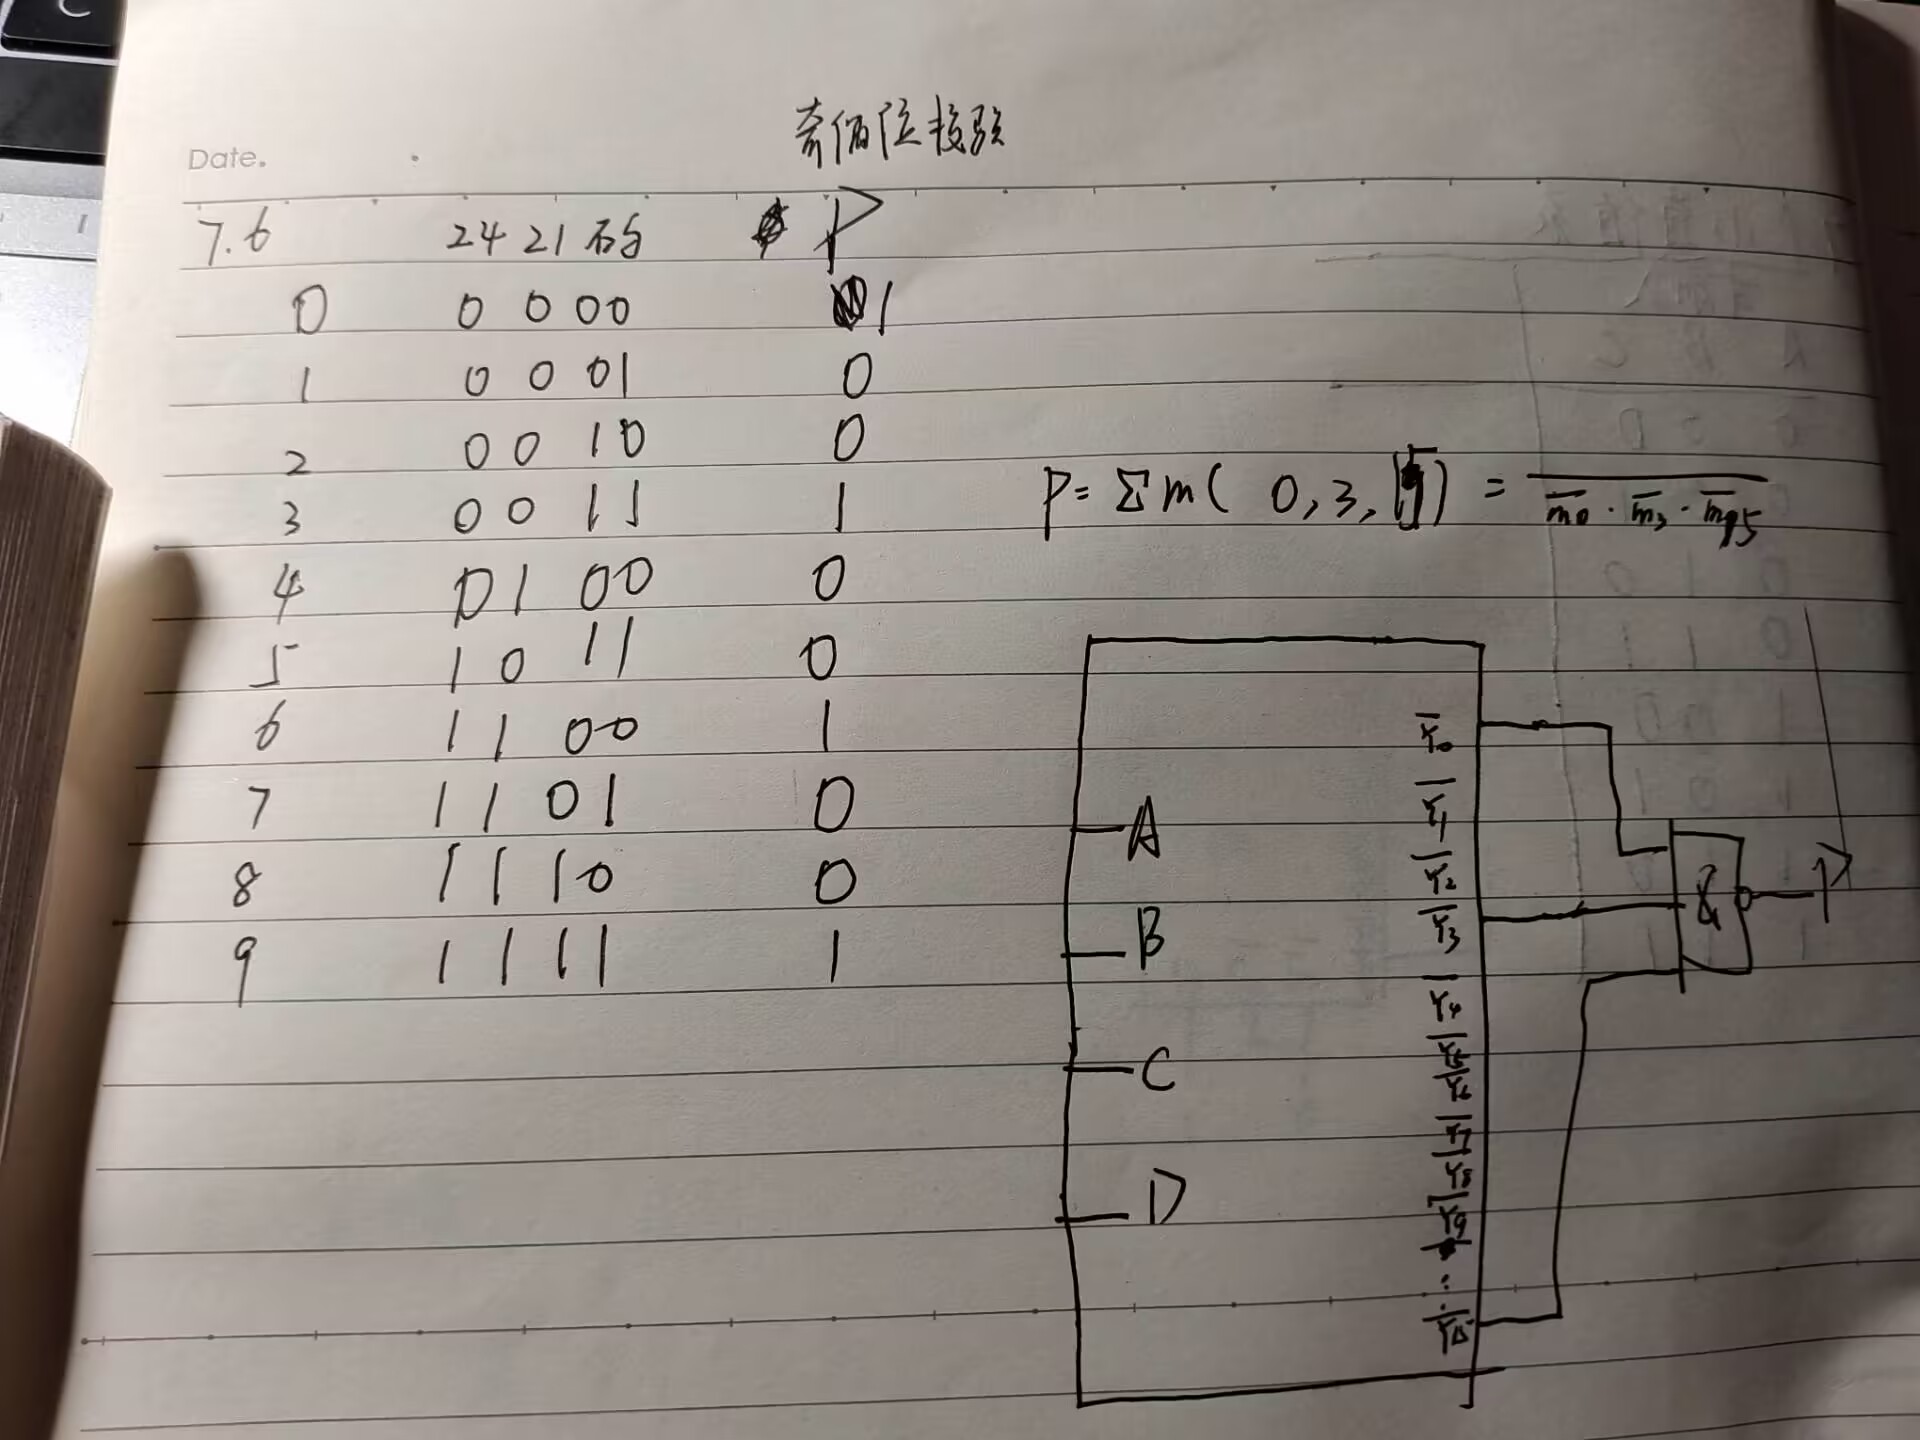 奇偶位校验
Date.
7.6 2421码 P
0 0000 1
1 0001 0
2 0010 0
3 0011 1
4 0100 0
5 1011 0
6 1100 1
7 1101 0
8 1110 0
9 1111 1
P=Σm( 0,3,15) = \overline{\overline{m0}·\overline{m3}·\overline{m15}}
A
B
C
D
\overline{Y0}
\overline{Y1}
\overline{Y2}
\overline{Y3}
\overline{Y4}
\overline{Y5}
\overline{Y6}
\overline{Y7}
\overline{Y8}
\overline{Y9}
⋮
\overline{Y15}
&
P